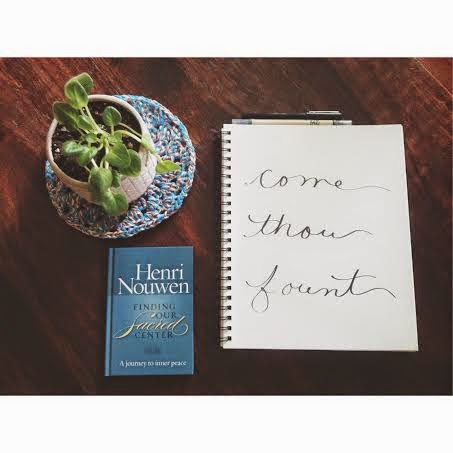 come
thou
fount
Henri
Nouwen
FINDING
OUR
Sacred
CENTER
A journey to inner peace